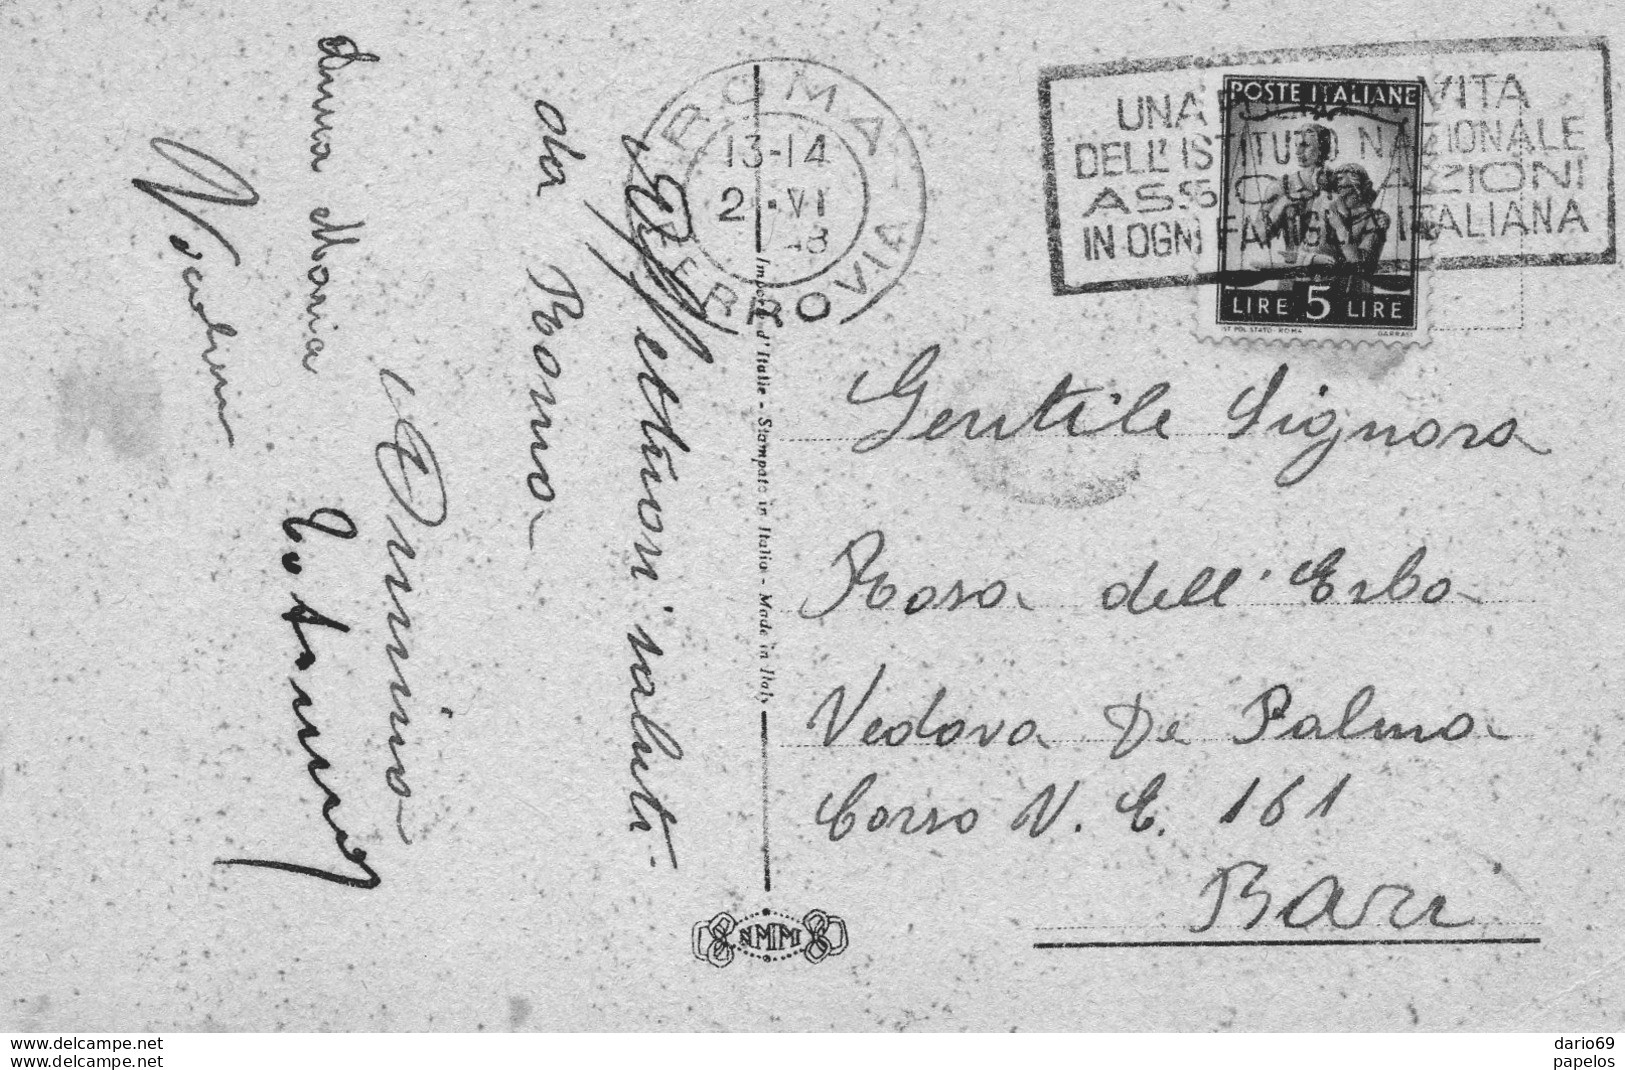 Affettuosi saluti
da Roma
Anna Maria
ROMA
FERROVIA
13-14
2 · VI
48
UNA POLIZZA VITA
DELL'ISTITUTO NAZIONALE
ASSICURAZIONI
IN OGNI FAMIGLIA ITALIANA
POSTE ITALIANE
LIRE 5 LIRE
IST. POL. STATO - ROMA
GARRASI
Importé d'Italie - Stampato in Italia - Made in Italy
NMM
Gentile Signora
Rosa dell'Erba
Vedova De Palma
Corso V. E. 161
Bari
www.delcampe.net
www.delcampe.net
dario69
papelos